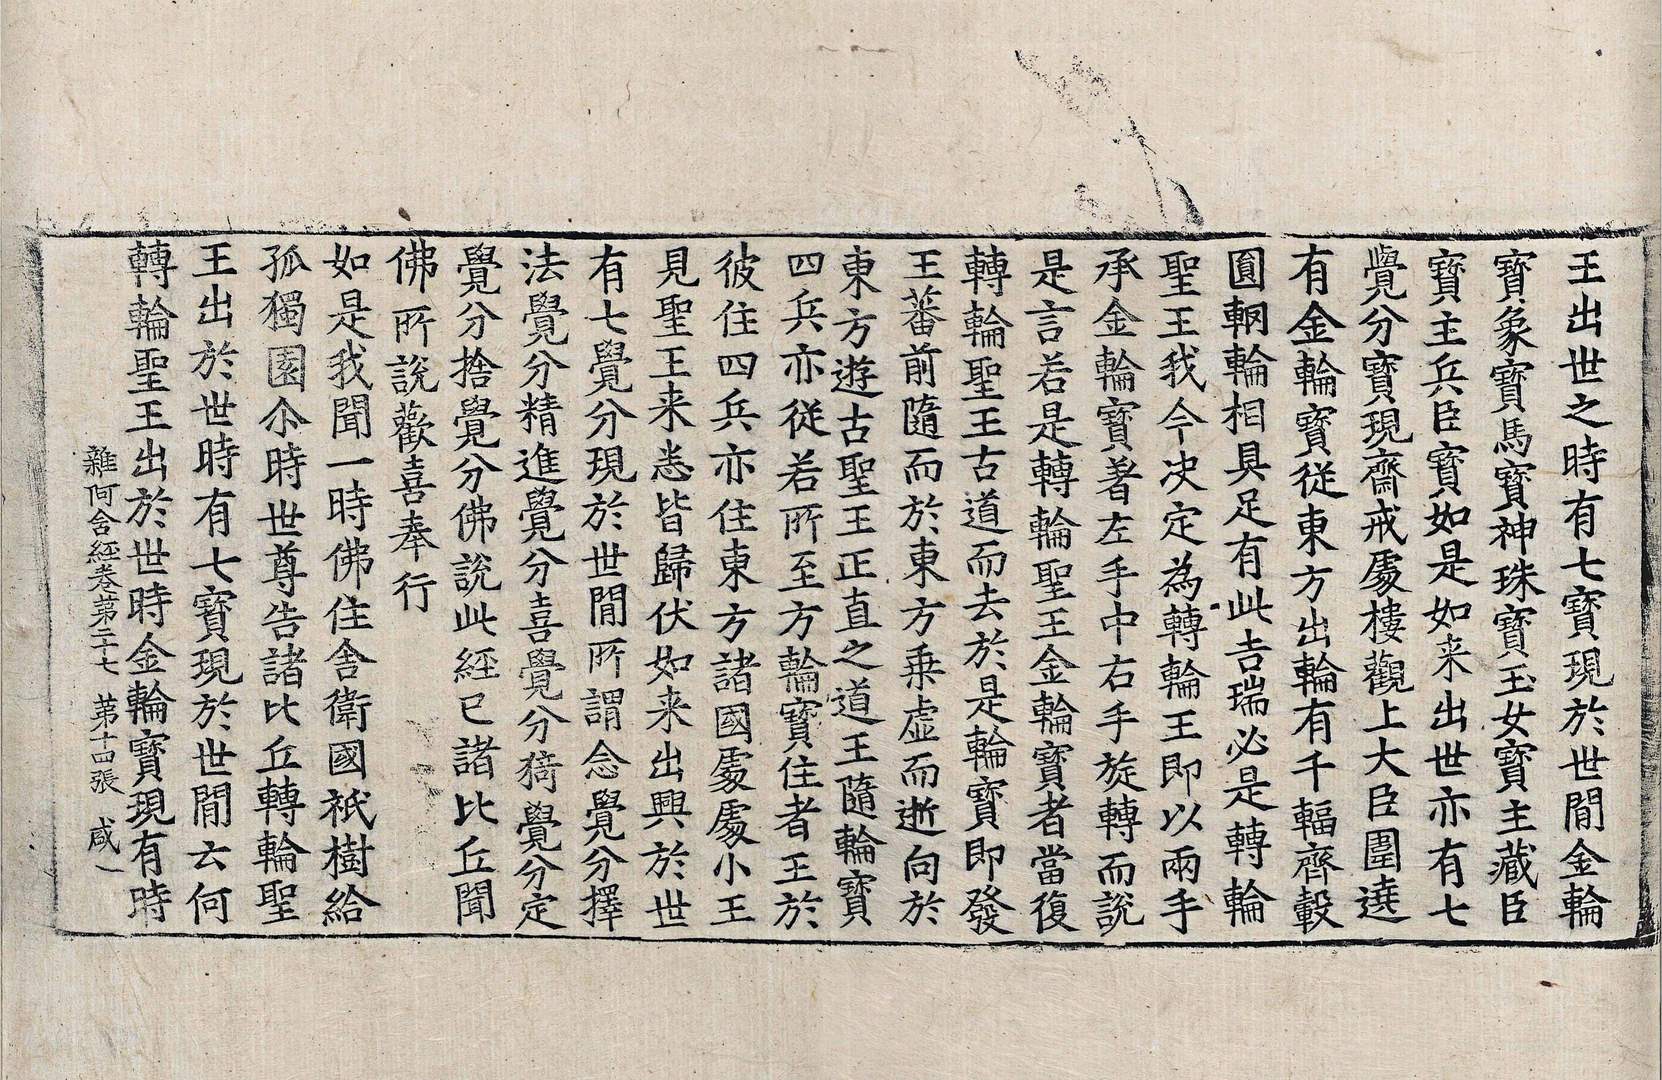 王出世之時有七寶現於世間金輪
寶象寶馬寶神珠寶玉女寶主藏臣
寶主兵臣寶如是如来出世亦有七
覺分寶現齋戒處樓觀上大臣圍遶
有金輪寶従東方出輪有千輻齊轂
圓輞輪相具足有此吉瑞必是轉輪
聖王我今决定為轉輪王即以兩手
承金輪寶著左手中右手旋轉而說
是言若是轉輪聖王金輪寶者當復
轉輪聖王古道而去於是輪寶即發
王蕃前隨而於東方乗虚而逝向於
東方遊古聖王正直之道王隨輪寶
四兵亦従若所至方輪寶住者王於
彼住四兵亦住東方諸國處處小王
見聖王来悉皆歸伏如来出興於世
有七覺分現於世間所謂念覺分擇
法覺分精進覺分喜覺分猗覺分定
覺分捨覺分佛說此經已諸比丘聞
佛所說歡喜奉行
如是我聞一時佛住舎衛國祇樹給
孤獨園尒時世尊告諸比丘轉輪聖
王出於世時有七寶現於世間云何
轉輪聖王出於世時金輪寶現有時
雜阿含經卷第二十七 苐十四張 咸